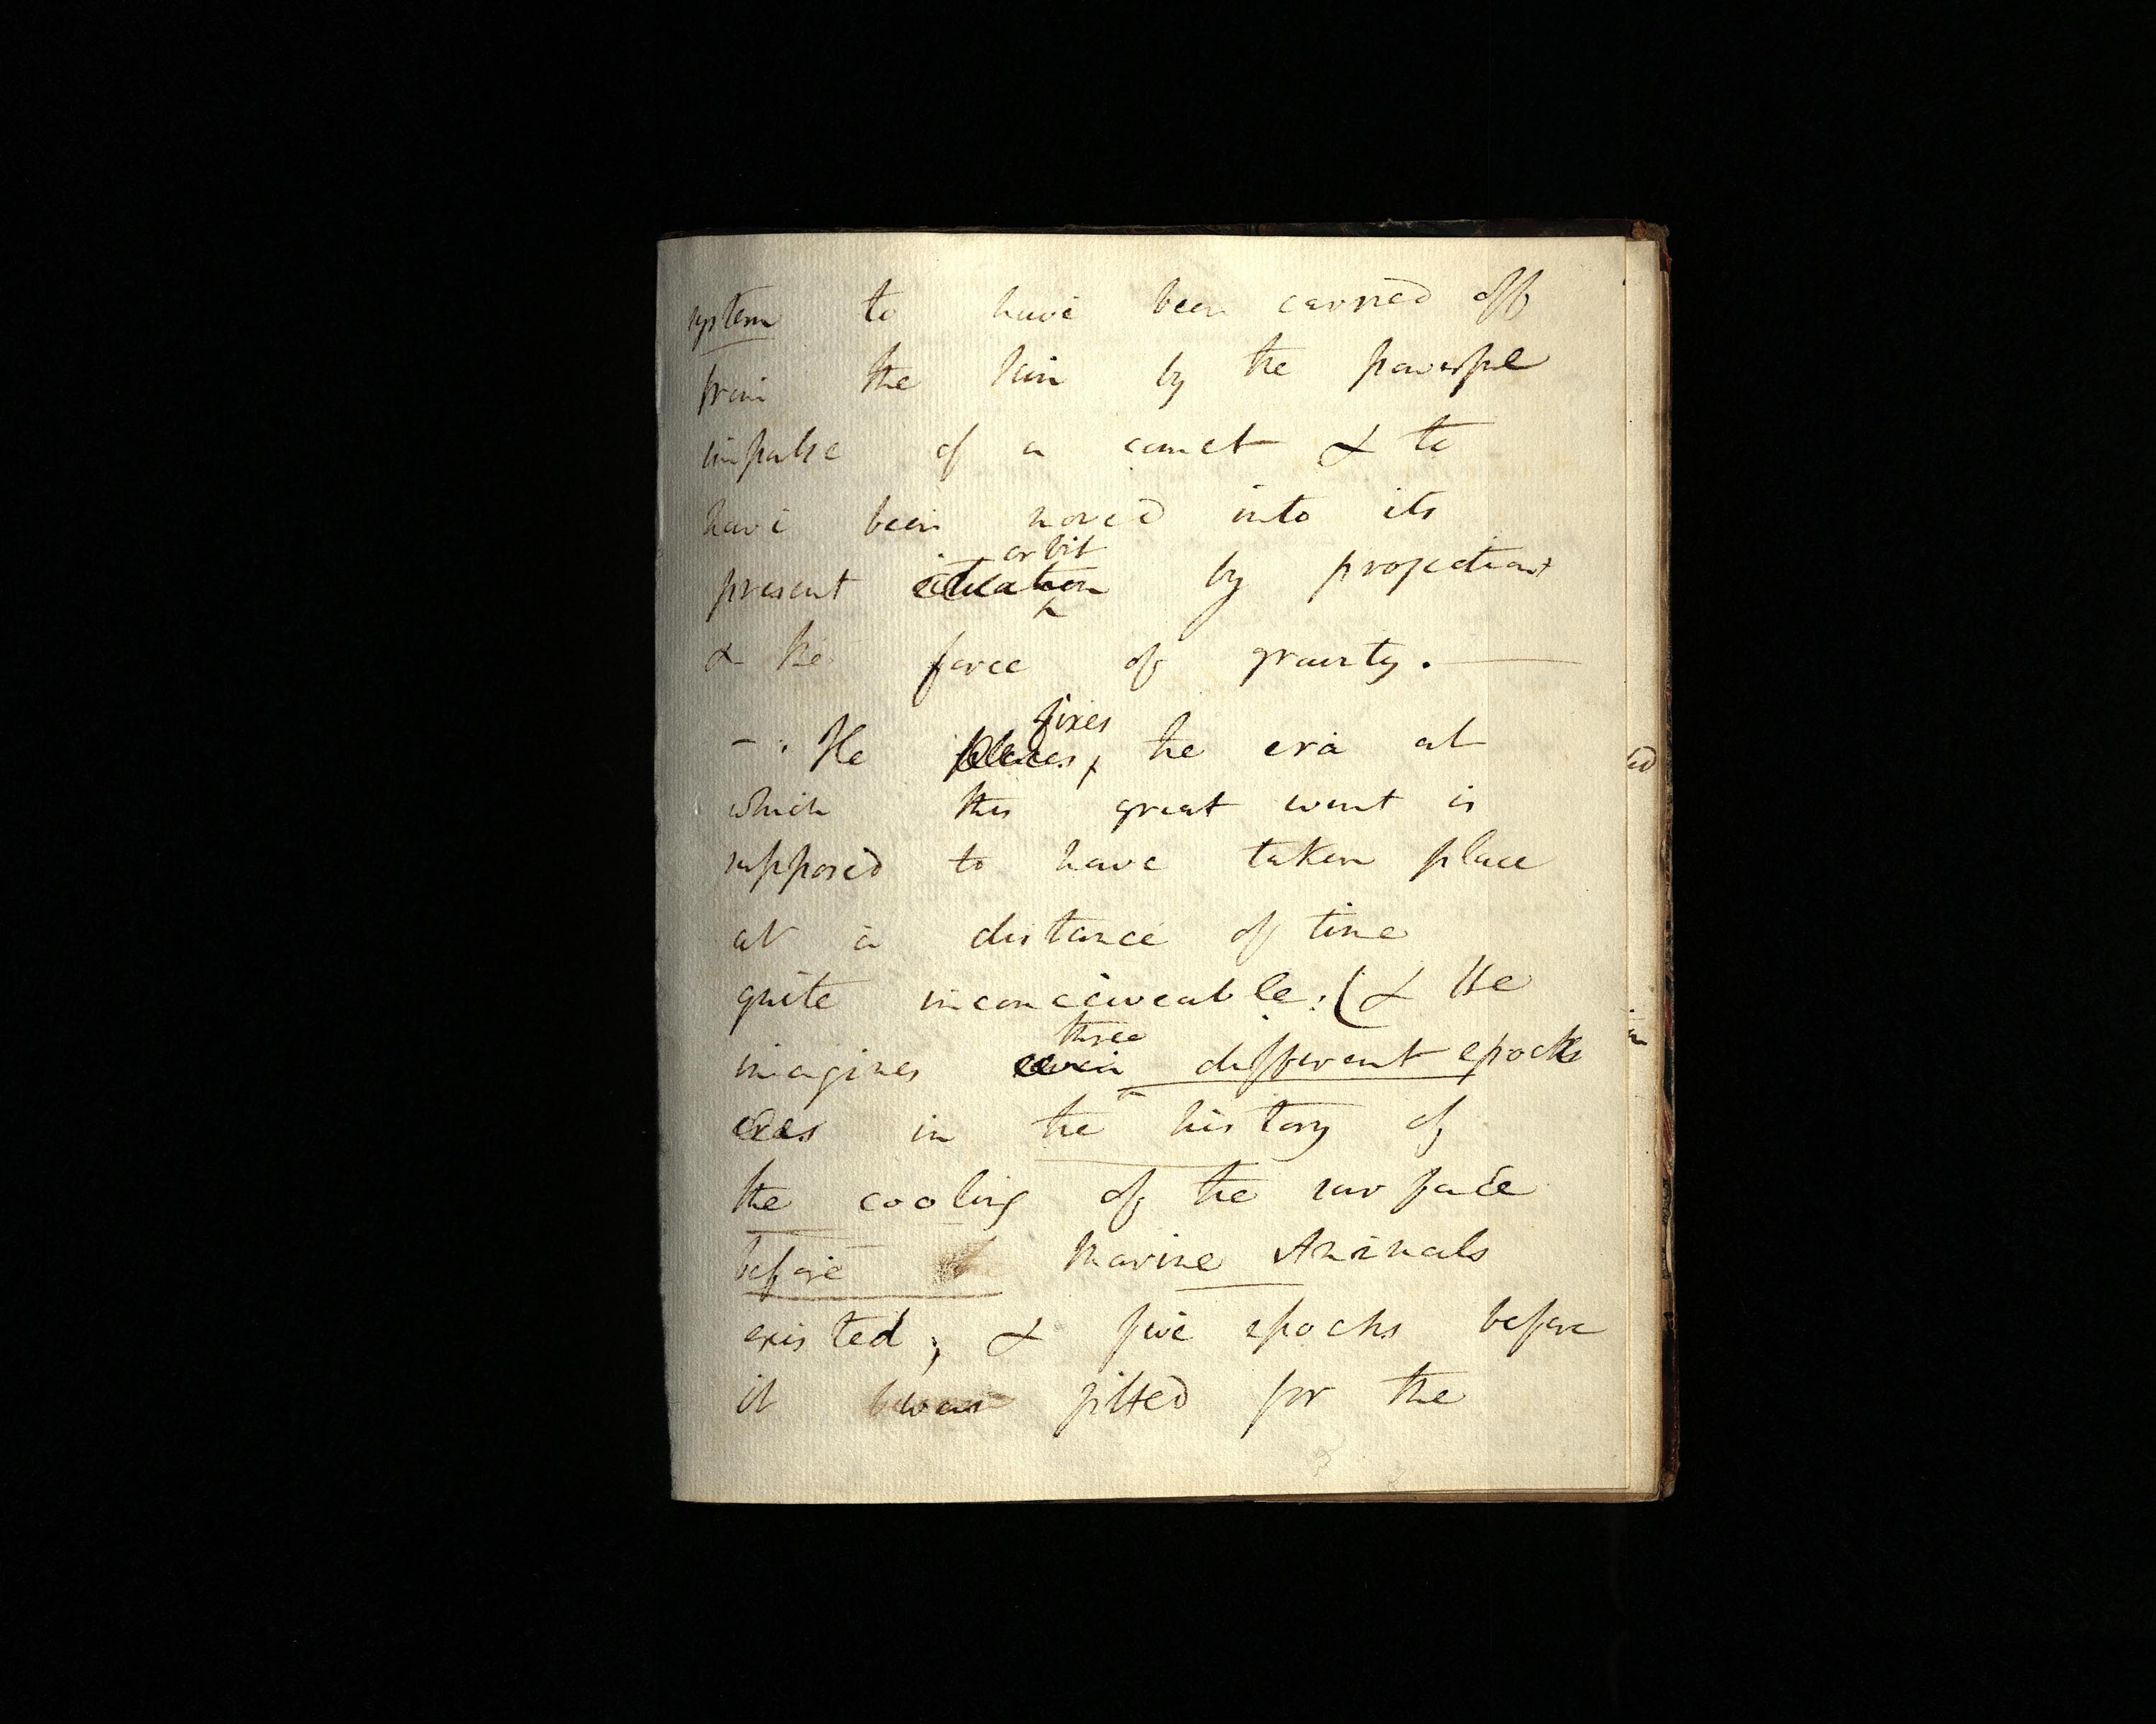 system to have been carried off
from the Sun by the powerful
impulse of a comet & to
have been moved into its
orbit
present situation by projection
& the force of gravity. —
fixes
– : He places, the era at
which this great event is
supposed to have taken place
at a distance of time
quite inconceiveable: (& He
three
imagines seven different epochs
eras in the history of
the cooling of the surface
before Marine Animals
existed; & five epochs before
it was fitted for the